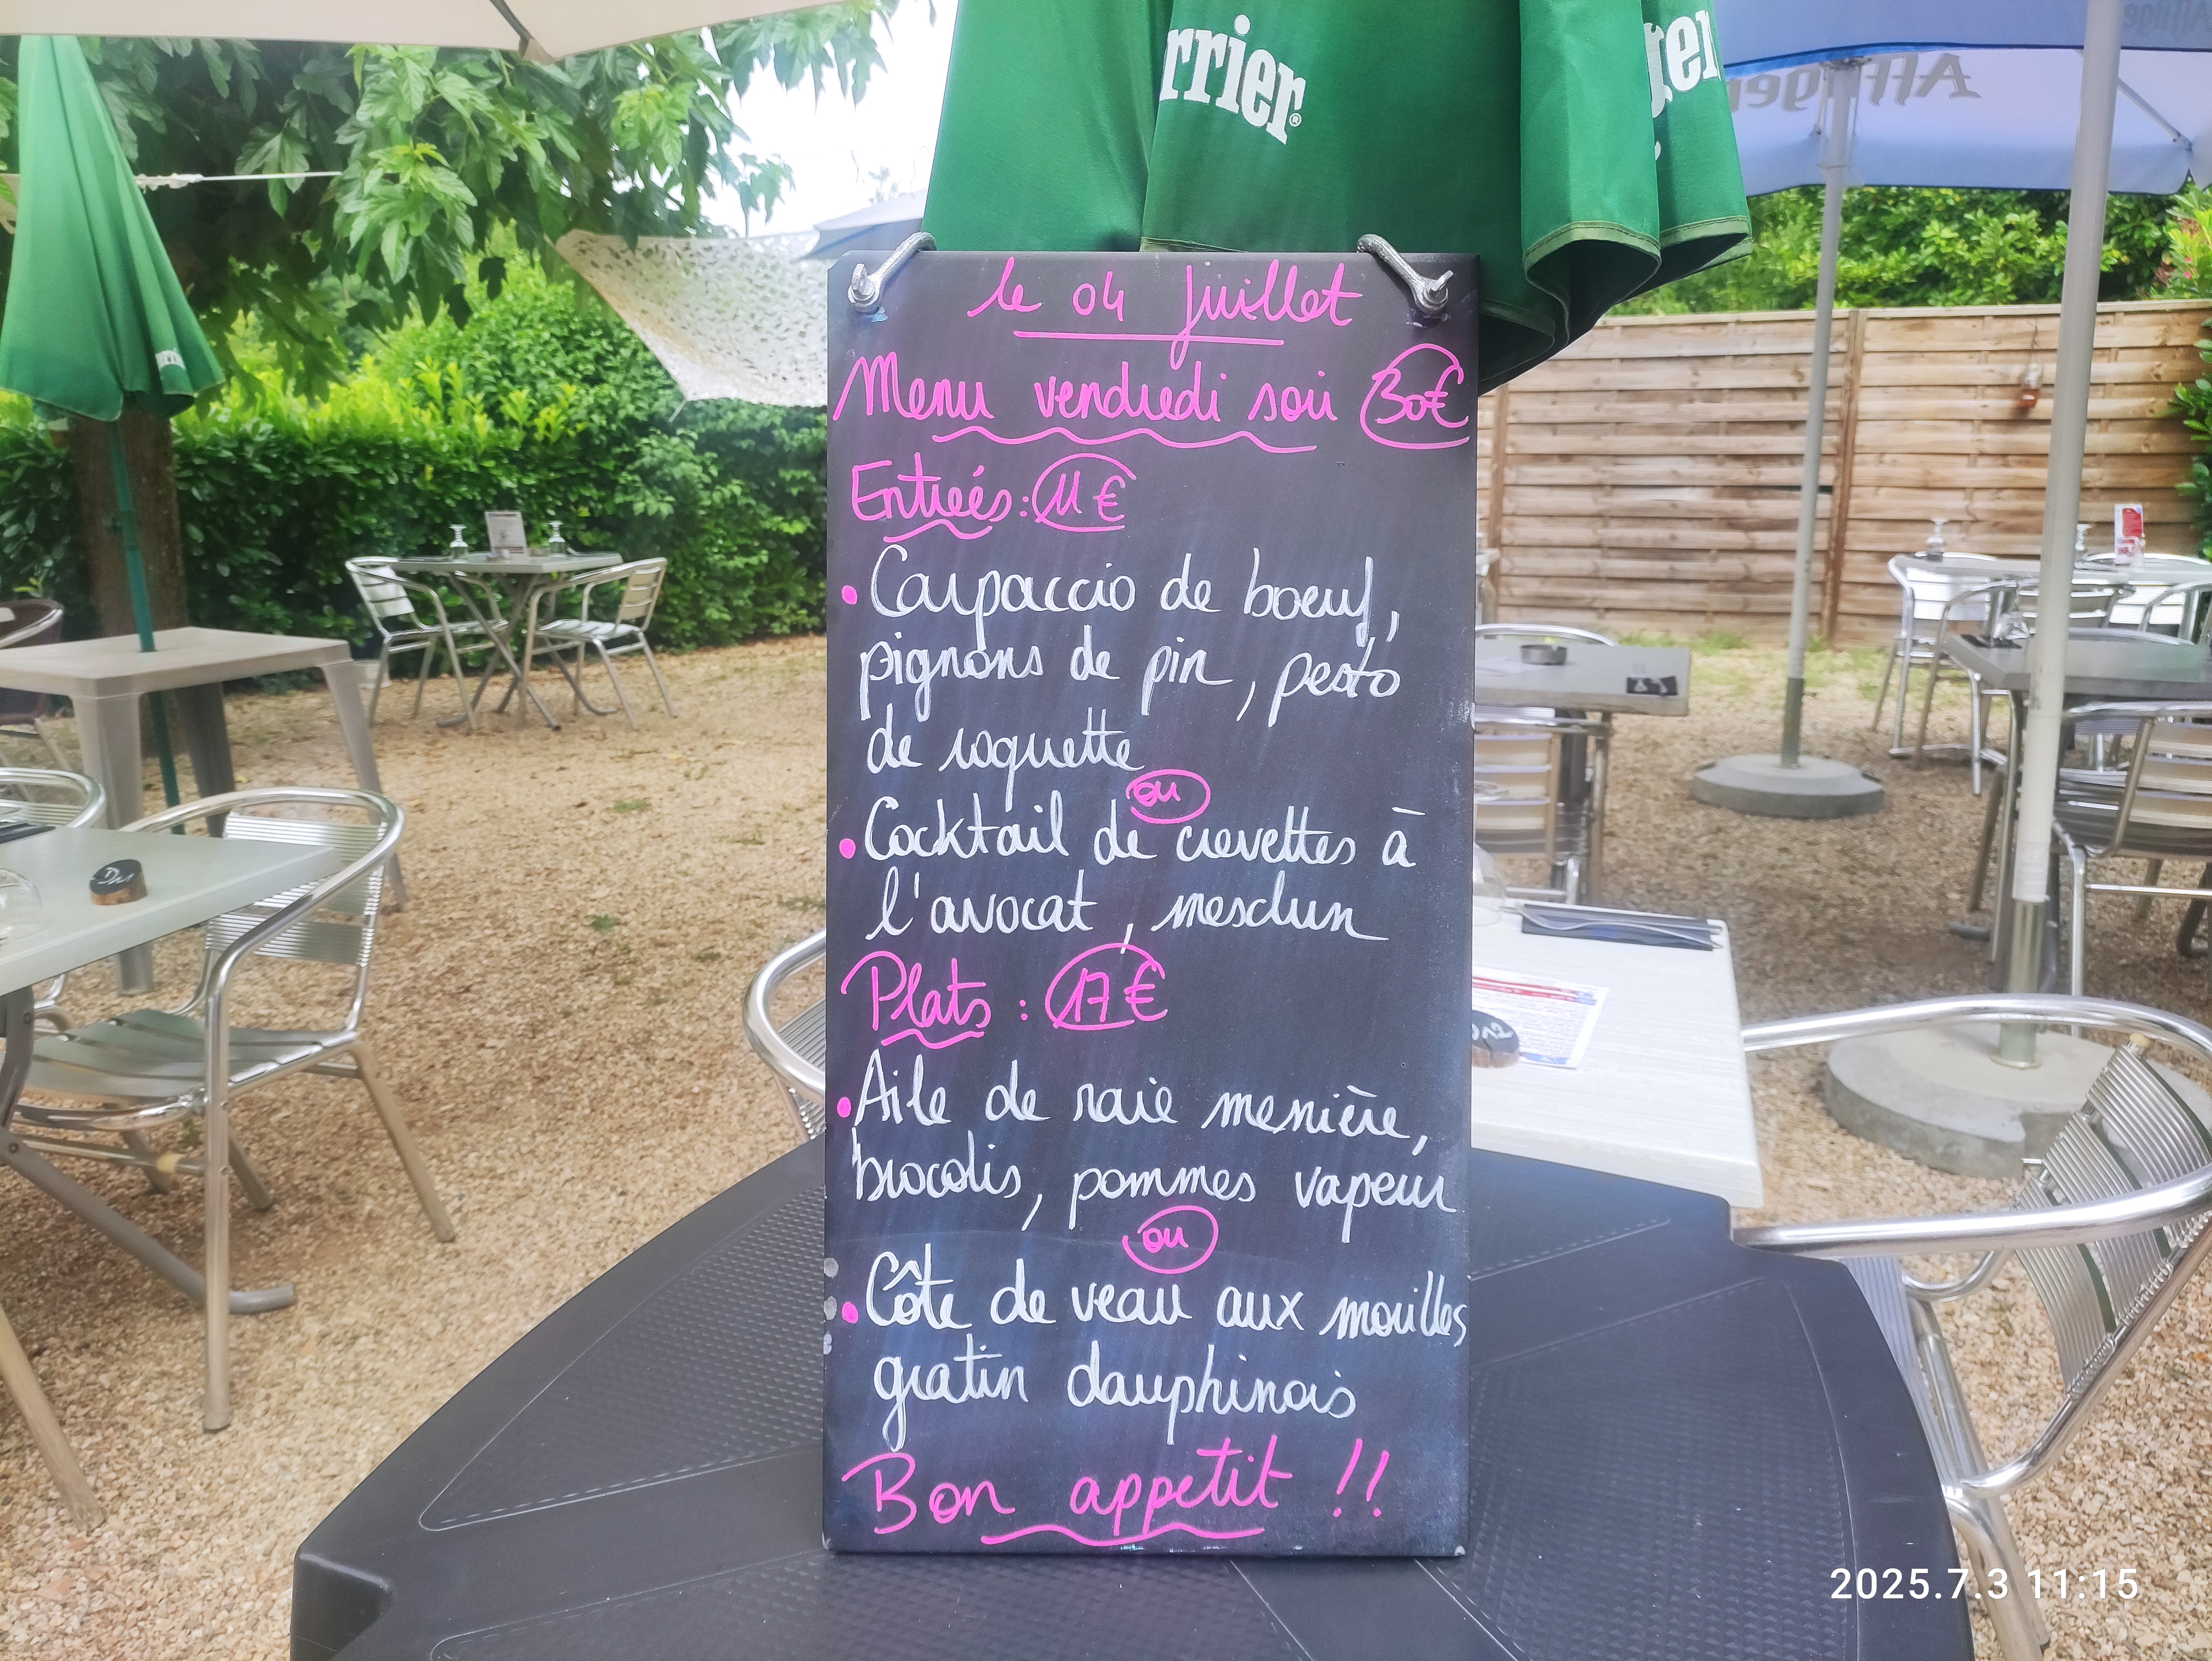 rrier®
Affligem
le 04 juillet
Menu vendredi soir 30€
Entrées : 11 €
• Carpaccio de boeuf,
pignons de pin, pesto
de roquette
ou
• Cocktail de crevettes à
l'avocat, mesclun
Plats : 17 €
• Aile de raie menière,
brocolis, pommes vapeur
ou
• Côte de veau aux morilles
gratin dauphinois
Bon appetit !!
2025.7.3 11:15